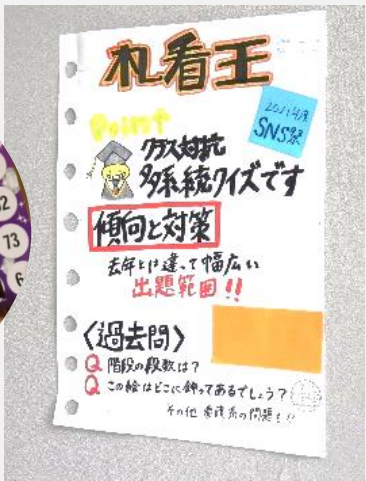 札看王
2021年度
SNS祭
Point
クラス対抗
多系統クイズです
傾向と対策
去年とは違って幅広い
出題範囲!!
〈過去問〉
Q 階段の段数は?
Q この絵はどこに飾ってあるでしょう?
その他 看護系の問題も!!
52
73
6